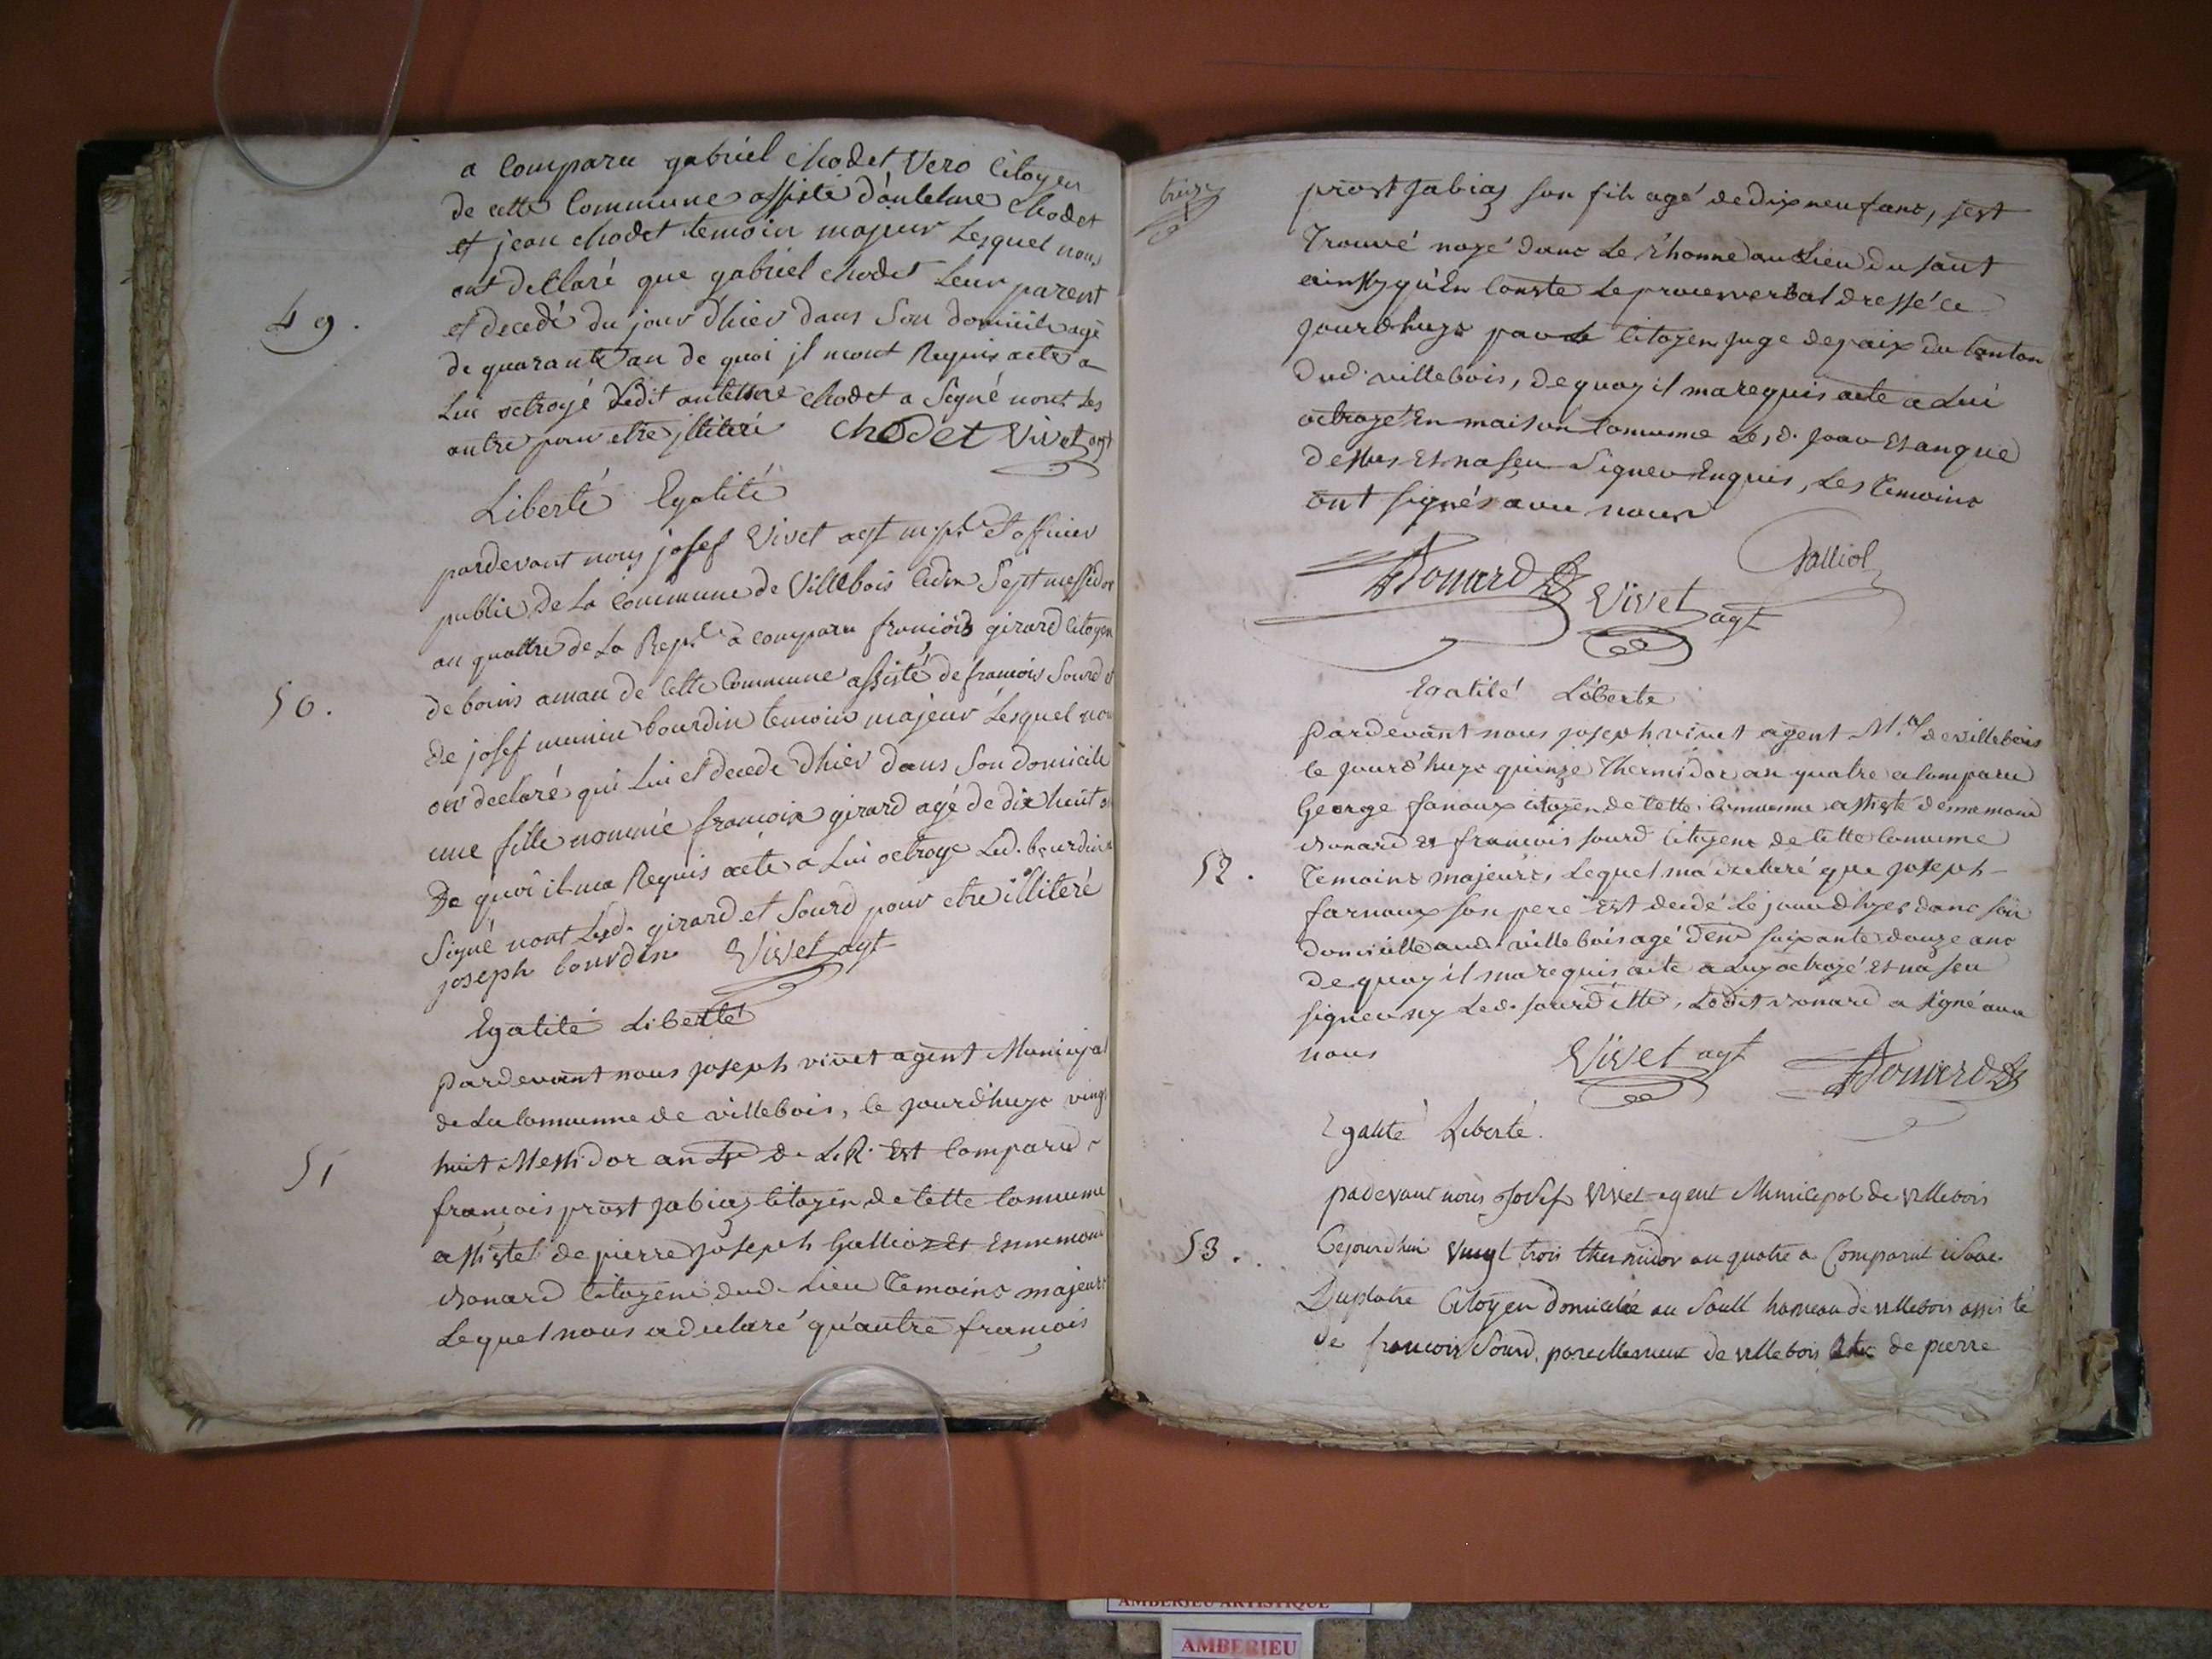 a comparu gabriel chodet Vero Citoyen
de cette Commune assisté d'antelme chodet
et jean chodet temoin majeur Lesquel nous
ont declaré que gabriel chodet Leur parent
49.
et decedé du jour d'hier dans Son domicile agé
de quarante an de quoi jl mont Requis acte a
Lui octroyé Ledit antelme chodet a Signé nont Les
autre pour etre jlliteré chodet Vivet agt
Liberté Egalité
pardevant nous josef Vivet agt mpl et officier
public de La Commune de Villebois Sept messidor
an quattre de La Repl a comparu francois girard Citoyen
50.
de cette Commune assisté de francois Sourd et
de josef bourdin temoins majeur Lesquel nou
on declaré qui Lui et decede d'hier dans Son domicile
une fille nommée francoise girard agé de dix heut
De quoi il ma Requis acte a Lui octroye Led. bourdin
Signé nont Lesd. girard et Sourd pour etre illiteré
joseph bourdin Vivet agt
Egalité Liberté
pardevant nous joseph vivet agent Municipal
de La Commune de villebois, ce jourdhuys vingt
51
huit Messidor an 4e de L.R. Est Comparu
françois prost jabiaz Citoyen de Cette Commune
assisté de pierre joseph Galliot Et Ennemond
Donard Citoyens dud. Lieu Temoins majeurs
Lequel nous a declaré qu'autre francois
treize
prost jabiaz son fils agé de dix neuf ans, s'est
Trouvé noyé dans Le Rhonne au Lieu du sault
ainsy qu'En Conste Le procesverbal dressé ce
jourdhuys par le Citoyen juge de paix du Canton
dud. villebois, de quoy il ma requis acte a Lui
octroyé En maison Commune Les d. jour Et an que
dessus Et na seu Signer Enquis, Les Temoins
ont signés avec nous
Donard Vivet agt Galliot
Egalité Liberte
pardevant nous joseph vivet agent M.al de villebois
ce jourd'huys quinze Thermidor an quatre a Comparu
George farnoux citoyen de Cette Commune assisté d'ennemond
donard et francois sourd Citoyens de Cette Commune
52.
Temoins majeurs, Lequel ma declaré que joseph
farnoux son pere Est decédé Le jour d'hyer dans son
domicille aud. villebois agé d'env soixante douze ans
de quoy il ma requis acte a Luy octroyé Et na seu
signer ny Led. sourd Ledit Donard a signé avec
nous Vivet agt Donard
Egalité Liberté.
padevant nous Josef Vivet agent Municipal de villebois
53.
Cejourdhui vingt trois thermidor an quatre a Comparut
Duplatre Citoyen domicilié au Sault hameau de villebois assisté
de francois Sourd, pareillement de villebois de pierre
AMBERIEU ARTISTIQUE
AMBERIEU